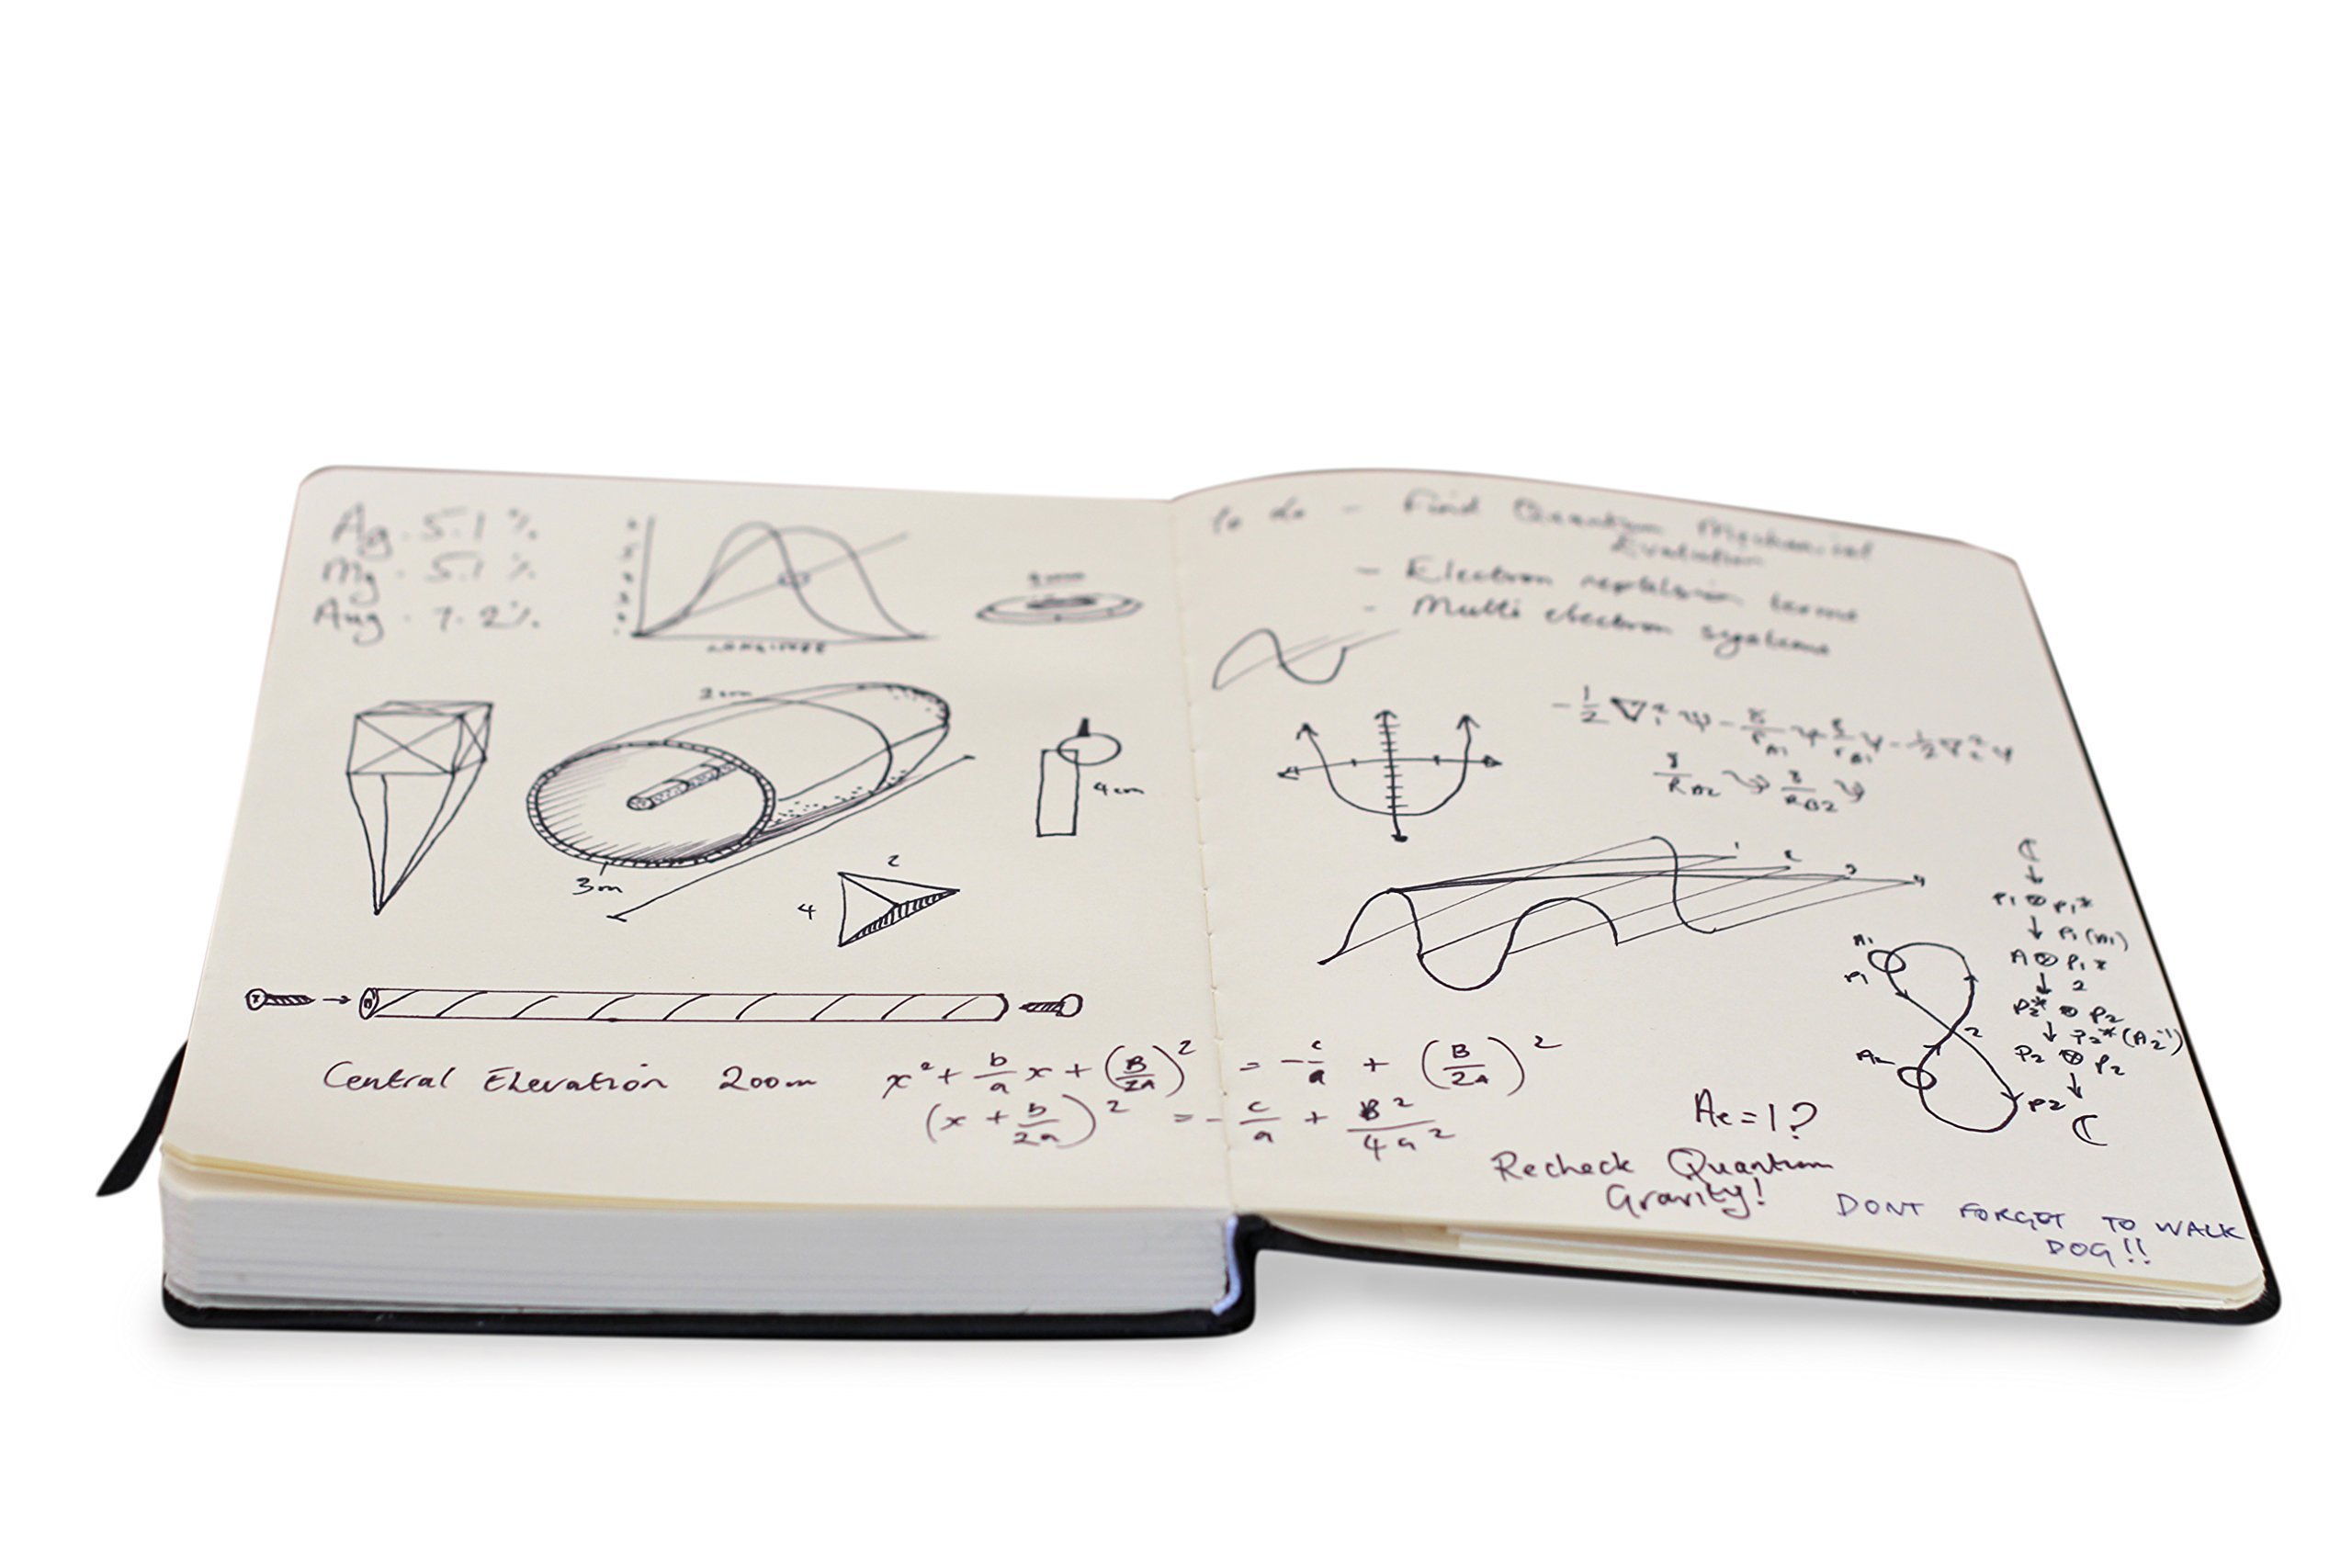 Ag. 5.1%
Mg. 5.1%
Aug. 7.2%
2cm
4cm
3m
2
4
Central Elevation 200m
x² + b/a x + (B/2A)² = -c/a + (B/2A)²
(x + b/2a)² = -c/a + B²/4a²
to do - Find Quantum Mechanical
Evaluation
- Electron repulsion terms
- Multi electron systems
1 2 3 4
A₁
A₂
2
P2
ℂ
↓
P₁ ⊗ P₁*
↓ P₁(A₁)
A ⊗ P₁*
↓ 2
P₂* ⊗ P₂
↓ P₂*(A₂⁻¹)
P₂ ⊕ P₂
↓
ℂ
Ae = 1?
Recheck Quantum
Gravity!
DONT FORGET TO WALK
DOG!!